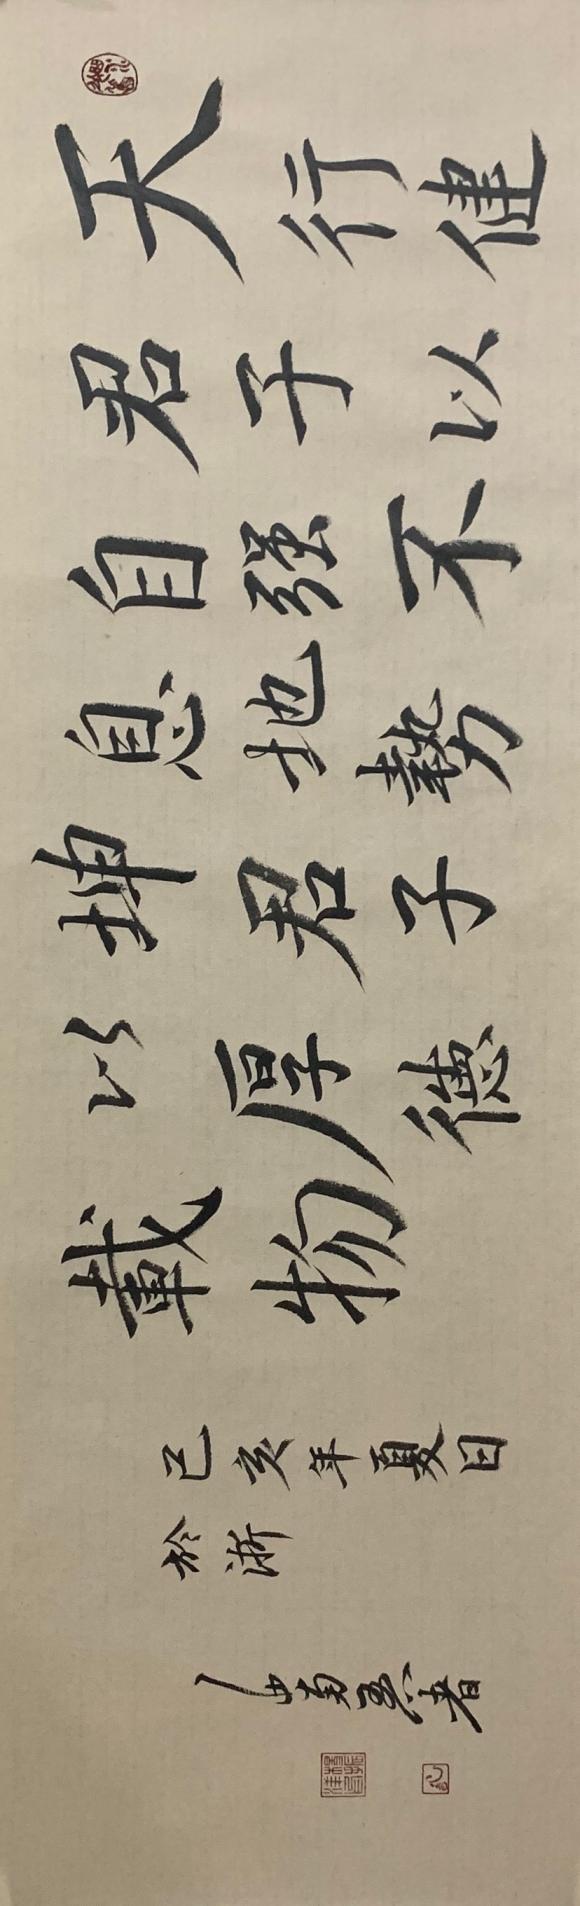 天行健
君子以
自强不
息地勢
坤君子
以厚德
載物
己亥年夏日
於浙